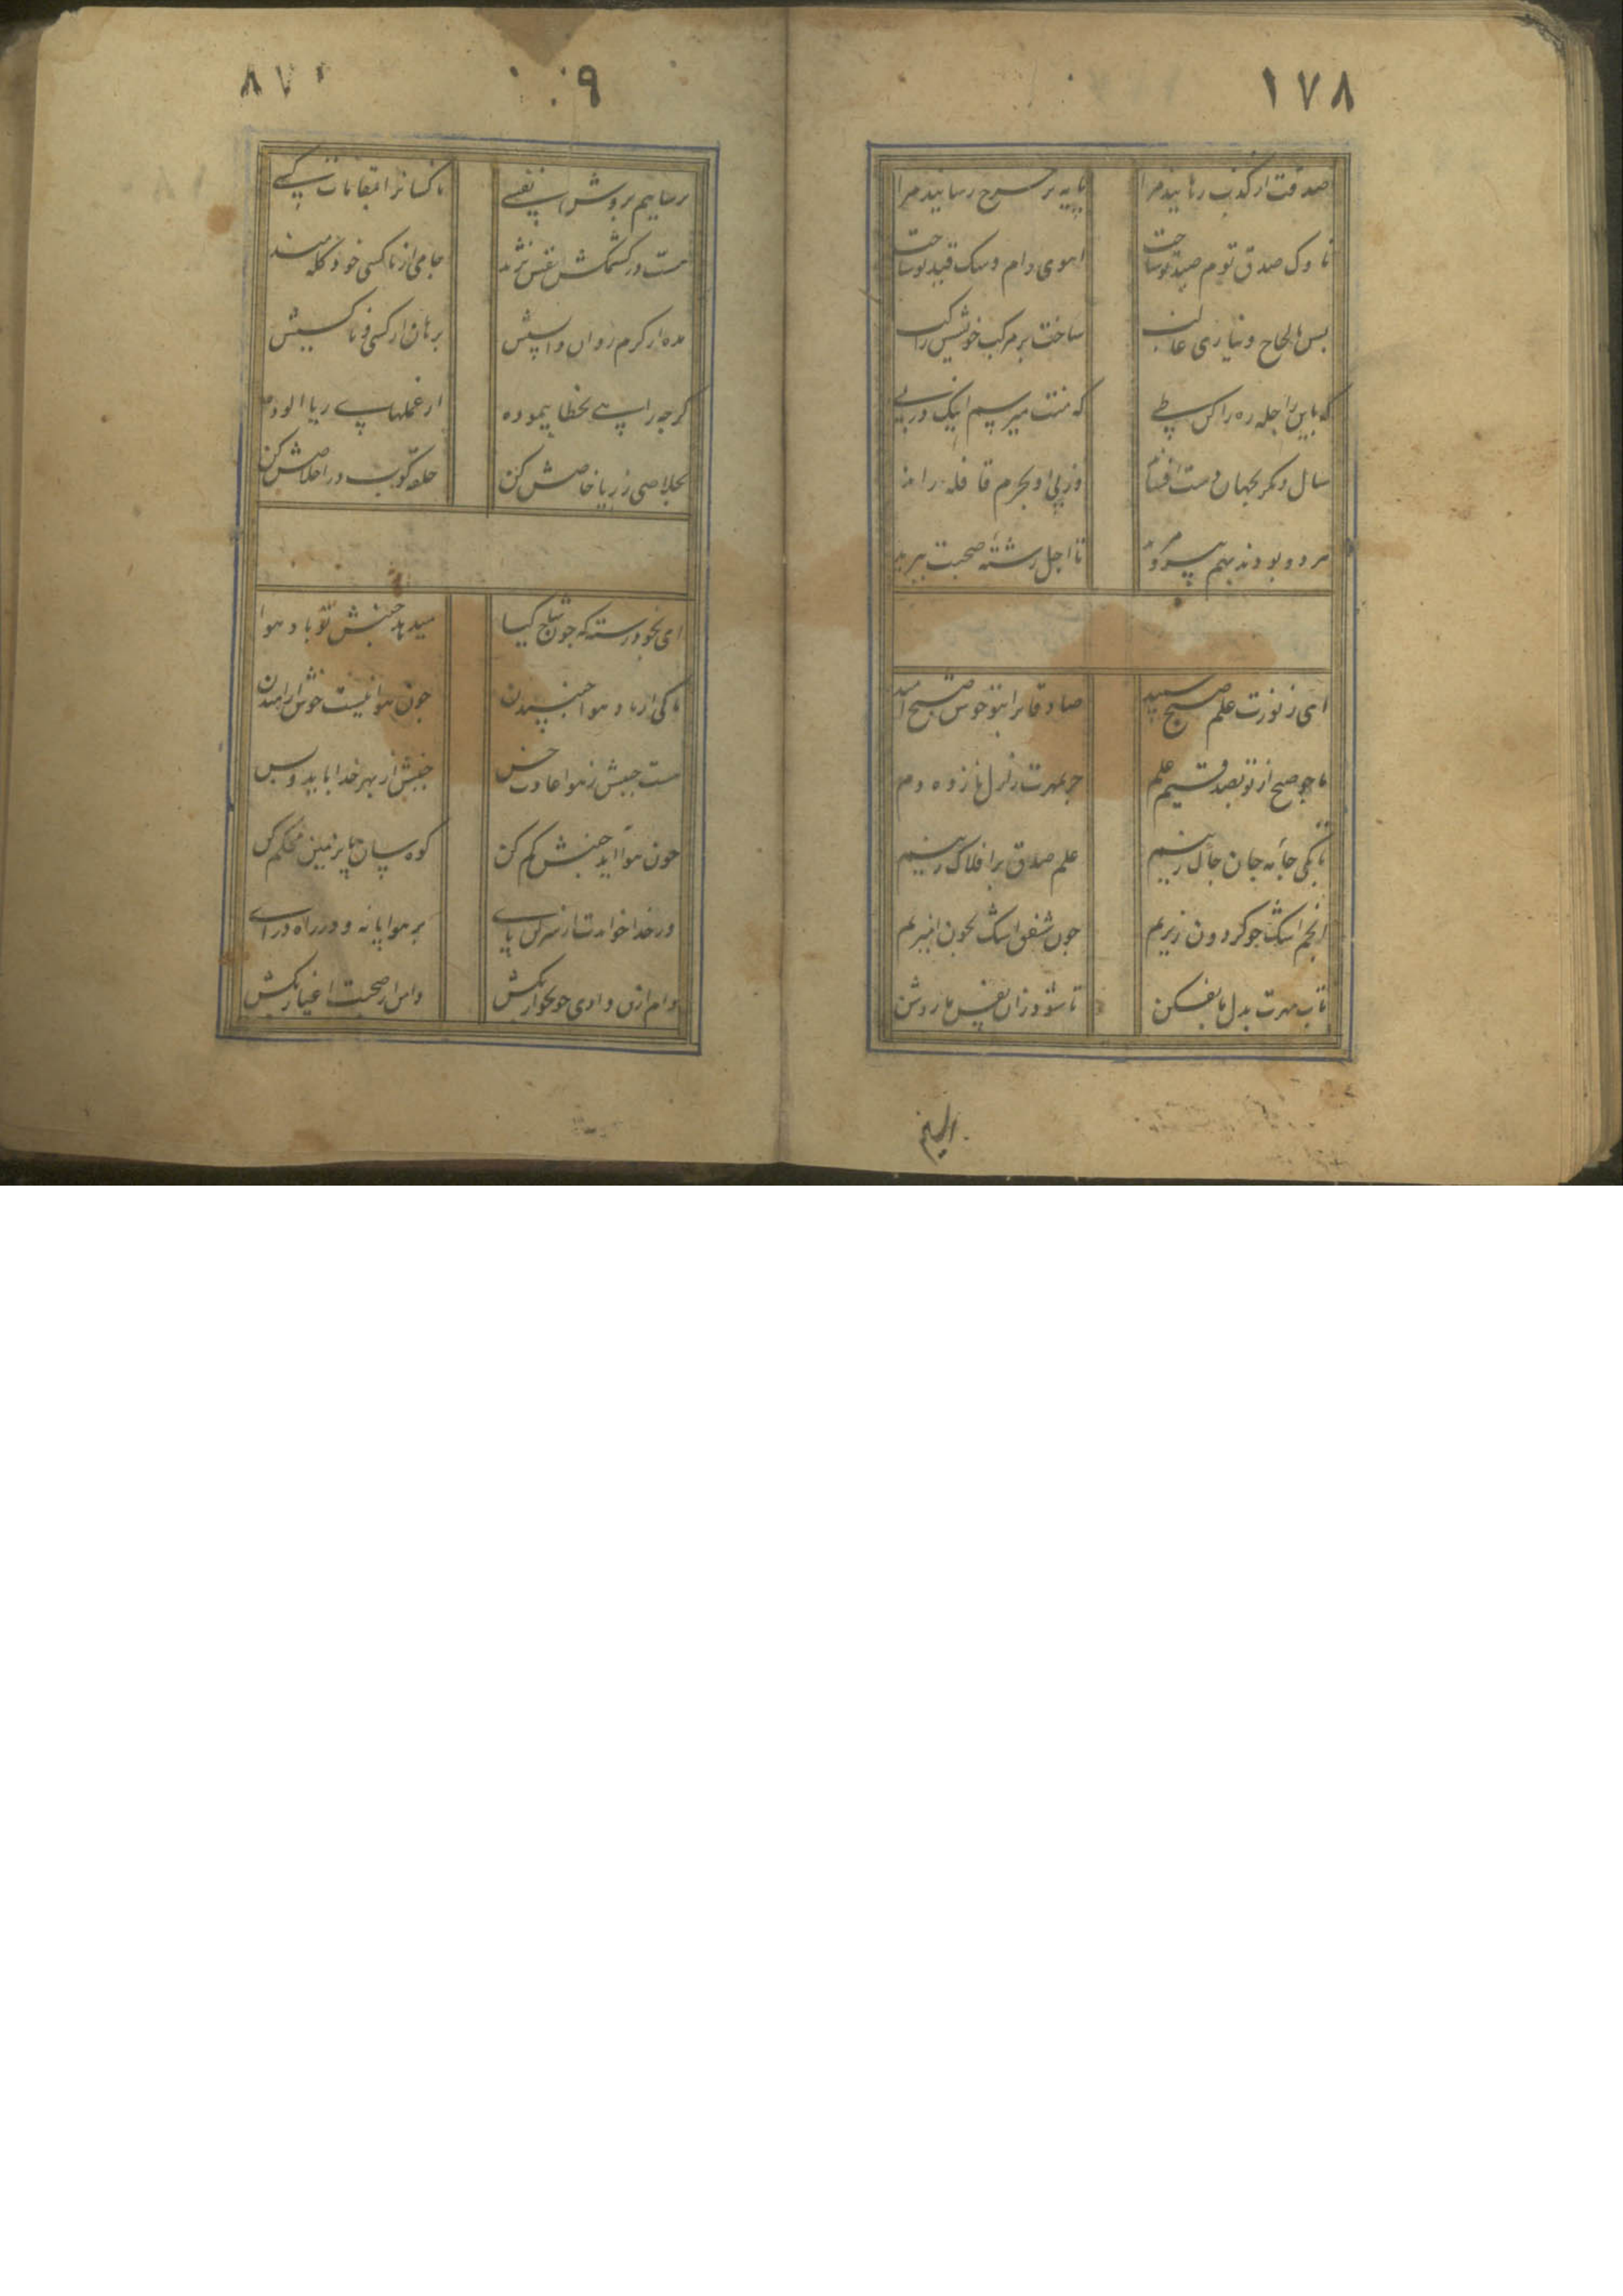 ۱۷۸
صدقت از کذب رهانید مرا پایه بر سرح رسانید مرا
ناوک صدق توم صید تو ساخت اهوی دام و سک قید تو ساخت
بس بالحاح و نیازی غالب ساخت بر مرکب خویشس راکب
که باین راحله ره را کن طی که منت میرسم اینک در پی
سال دیکر بجهان دست افشاند وز پی او بحرم قافله راند
مرد و بودند بهم تا اجل رشتهٔ صحبت ببرید
ای ز نورت علم صبح سپید صادقانرا بتو خوش صبح امید
ما جو صبح از تو بصدقیم علم جز بمهرت ز دل ما نزده دم
تا بکی جامه جان جاک زنیم علم صدق بر افلاک زنیم
انجم اشک جو کردون ریزیم جون شفق اشک بخون امیزیم
تاب مهرت بدل ما بفکن تا شود زان نفس ما روشن
الهیم
۹ ۸۷۰
برسانیم بروشن نفسی ناکسانرا بمقامات کسی
هست در کشمکش نفس نژند جامی از ناکسی خود کله مند
مده از کرم روان واپسیش برهان از کسی و ناکسیش
کرجه راهی بخطا پیموده از عملهای ریا الوده
بخلاصی ز ریا خاصش کن حلقه کوب در اخلاصش کن
ای بخود رسته که جون شاخ کیا میدهد جنبش تو باد هوا
تا کی از باد هوا جنبیدن جون هوا نیست خوش ارامیدن
هست جنبش ز هوا عادت خس جنبش از بهر خدا باید و بس
جون هوا اید جنبش کم کن کوه سان پا بزمین محکم کن
ور خدا خواهدت از سر کن پای بر هوا پا نه و در راه درای
وام ازین وادی خونخوار بکش دامن از صحبت اغیار بکش